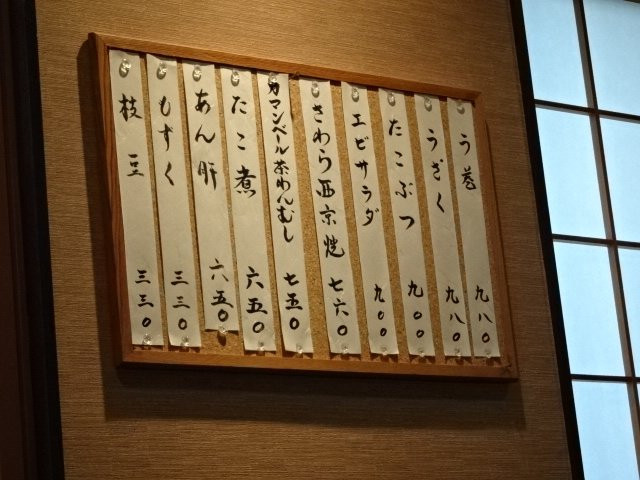 う巻 九八〇
うざく 九八〇
たこぶつ 九〇〇
エビサラダ 九〇〇
さわら西京焼 七六〇
カマンベール茶わんむし 七五〇
たこ煮 六五〇
あん肝 六五〇
もずく 三三〇
枝豆 三三〇